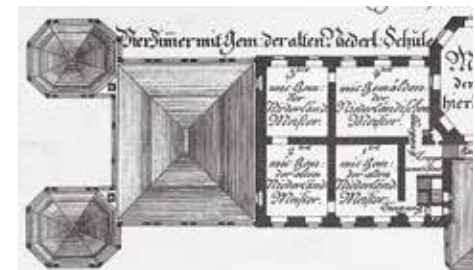 Vier Zimmer mit Gem. der alten Niederl. Schule
3tes
mit Gem:
der
Niederländ
Meister.
4tes
mit Gemälden
der
Niederländischen
Meister.
2tes
mit Gem:
der alten
Niederländ
Meister.
1tes
mit Gem:
der alten
Niederländ
Meister.
den
hier